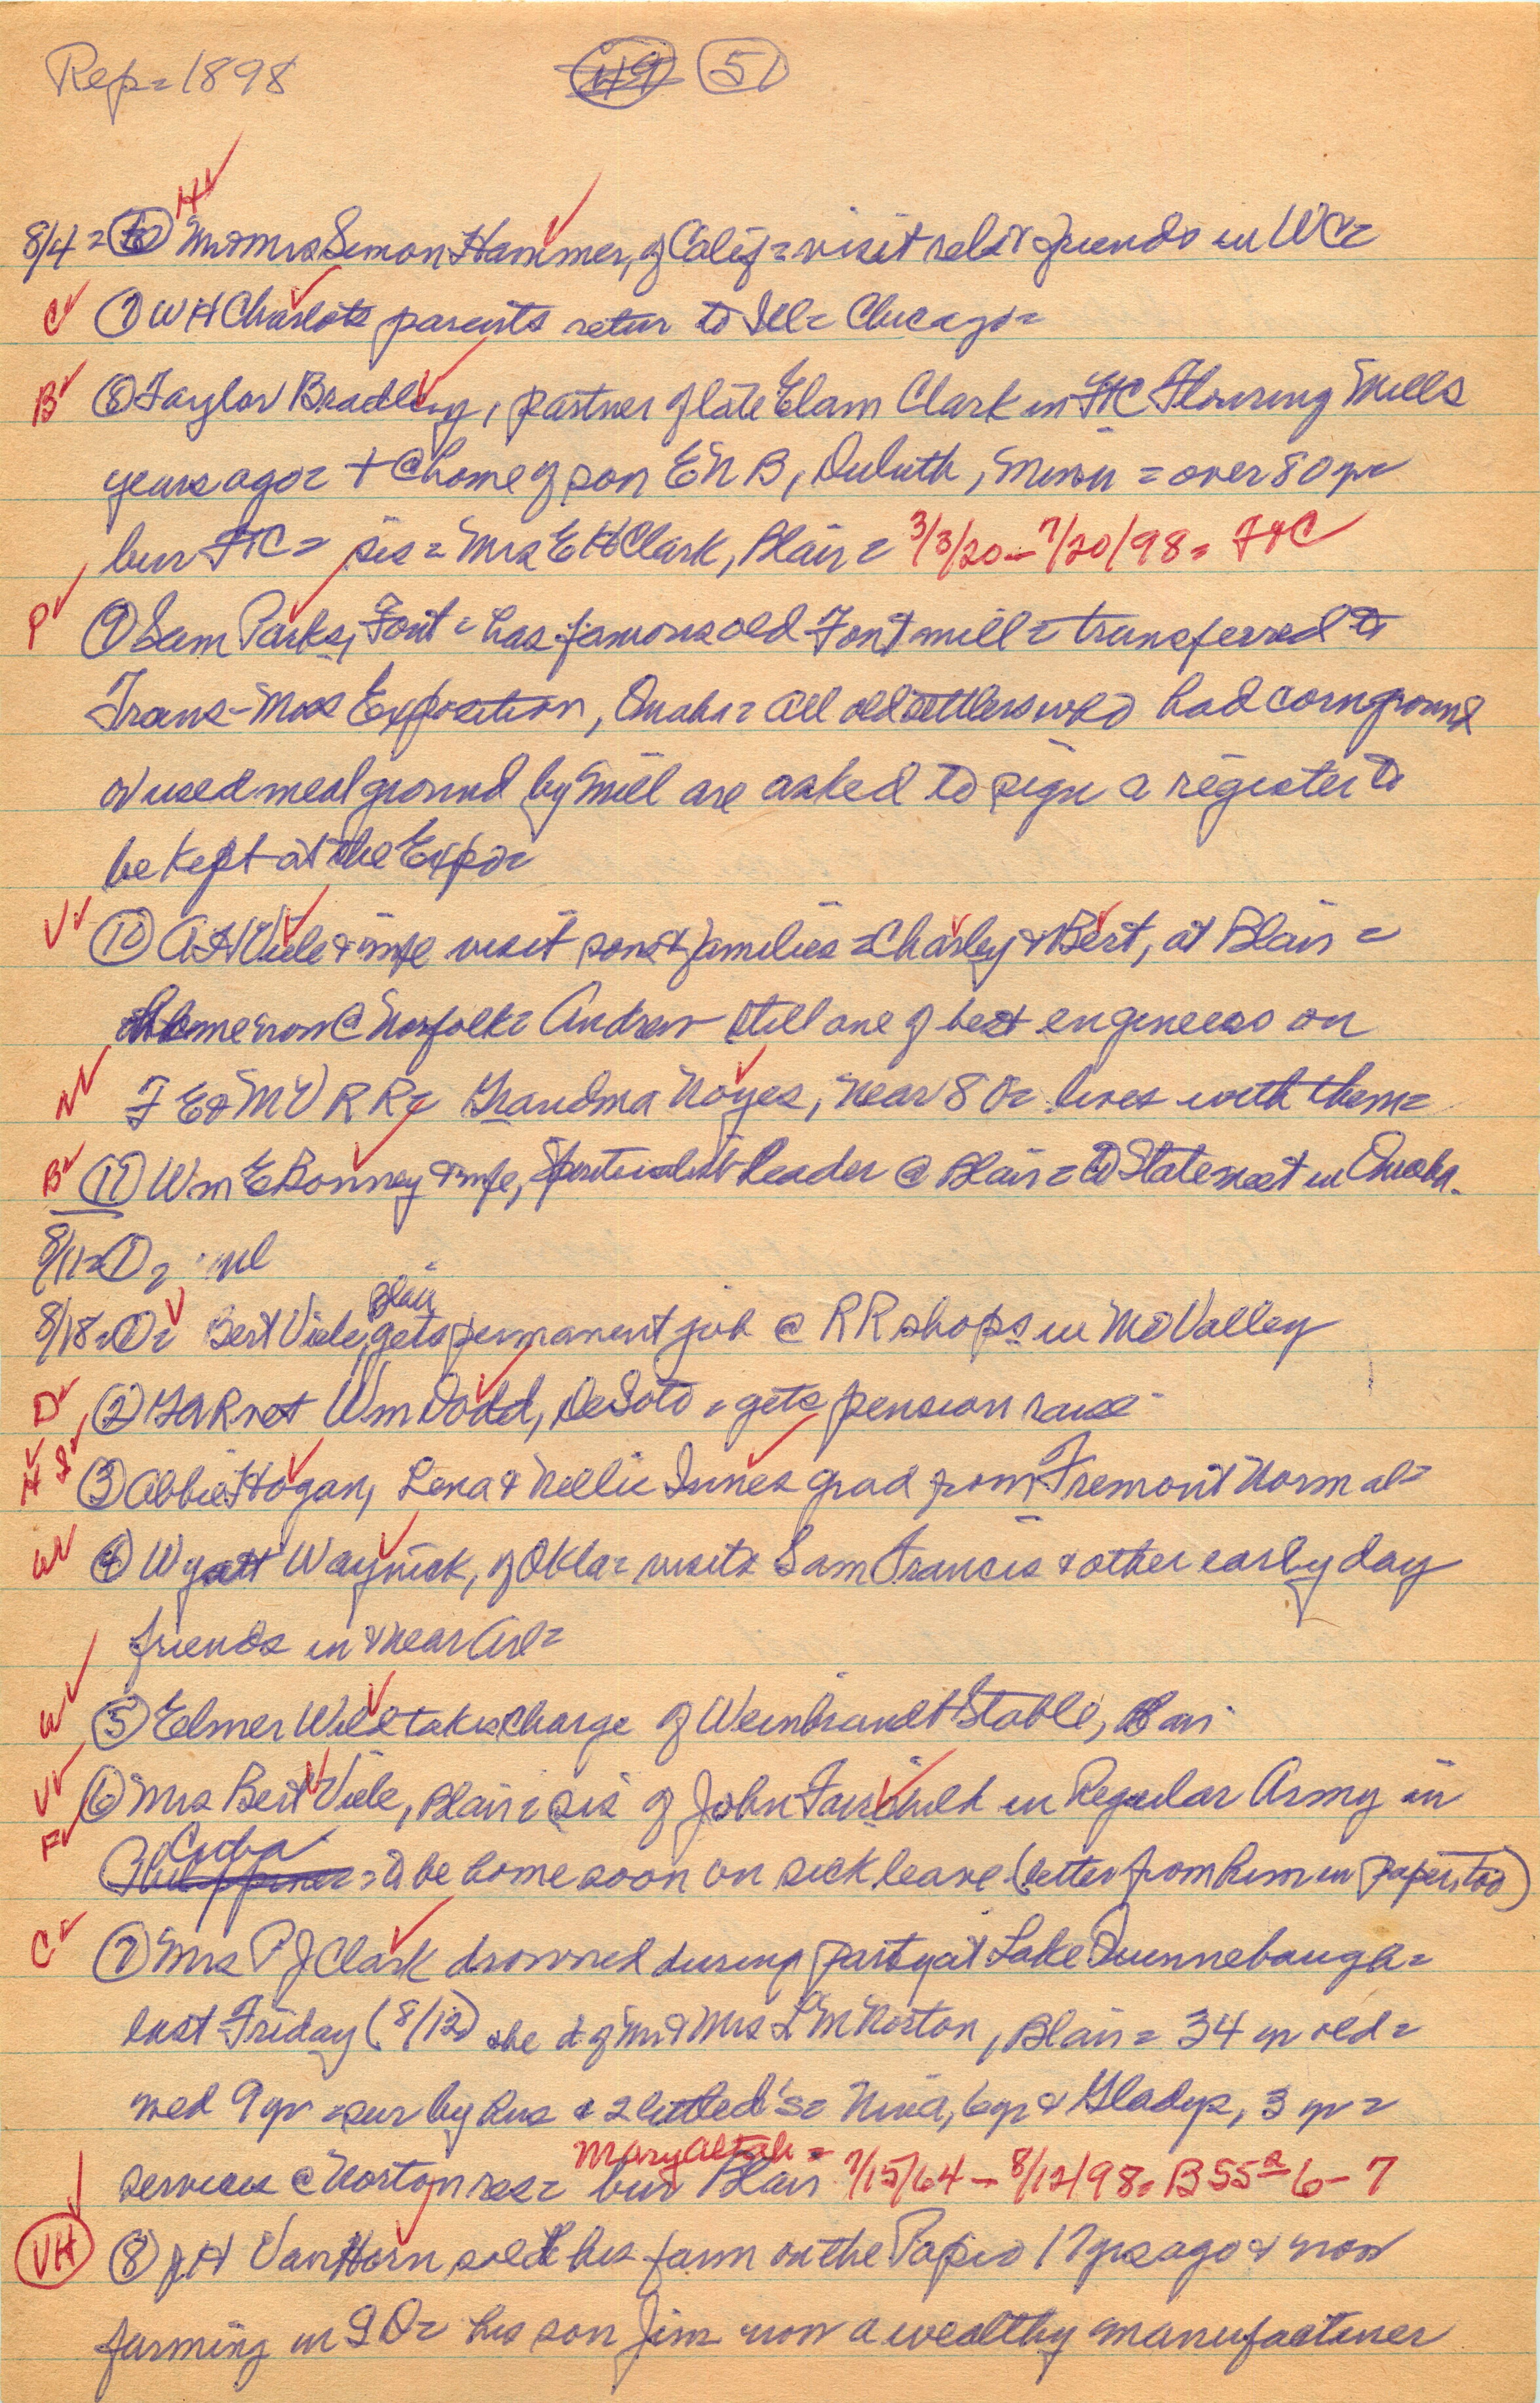 Rep = 1898 49 51
H
8/4 = 6 Mr & Mrs Simon Hammer, of Calif = visit rels & friends in WC =
C 7 WH Charlots parents retur to Ill = Chicago =
B 8 Taylor Bradley, partner of late Elam Clark in FtC Flouring Mills
years ago = + @ home of son E N B, Duluth, Minn = over 80 yr =
bur FtC = sis = Mrs E H Clark, Blair = 3/3/20 - 7/20/98 = FtC
P 9 Sam Parks, Font = has famous old Font mill = transferred to
Trans-Miss Exposition, Omaha = all old settlers who had corn ground
or used meal ground by mill are asked to sign a register to
be kept at the Expo =
V 10 A H Viele & wife visit sons & families = Charley & Bert, at Blair =
home now @ Norfolk = Andrew still one of best engineers on
N F E & M V R R = Grandma Noyes, near 80 = lives with them =
B 11 Wm E Bonney & wife, Spiritualist leader @ Blair = to State meet in Omaha.
8/11 = 1 =
Blair
8/18 = 1 = Bert Viele, gets permanent job @ RR shops in Mo Valley
D 2 GAR vet Wm Dodd, DeSoto = gets pension raise
H I 3 Abbie Hogan, Lena & Nellie Innes grad from Fremont Normal =
W 4 Wyatt Waynick, of Okla = visits Sam Francis & other early day
friends in & near Arl =
W 5 Elmer Wild takes charge of Weinbrandt Stable, Blair
V 6 Mrs Bert Viele, Blair = sis of John Fairchild in Regular Army in
F Cuba
Philippines = to be home soon on sick leave (letter from him in paper, too)
C 7 Mrs P J Clark drowned during party at Lake Quinnebaugh =
last Friday (8/12) she d of Mr & Mrs L M Norton, Blair = 34 yr old =
med 9 yr = sur by hus & 2 little d's = Nina, 6 yr & Gladys, 3 yr =
Mary Altah =
services @ Norton res = bur Blair 7/15/64 - 8/12/98 = B 55 a 6 - 7
VH 8 J H Van Horn sold his farm on the Papio 17 yrs ago & now
farming in SD = his son Jim now a wealthy manufacturer